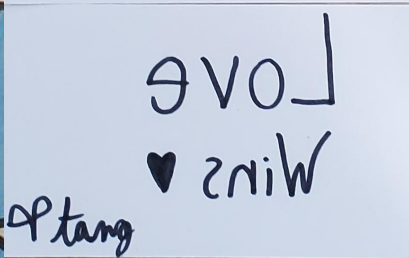 Love
Wins ♥
tang